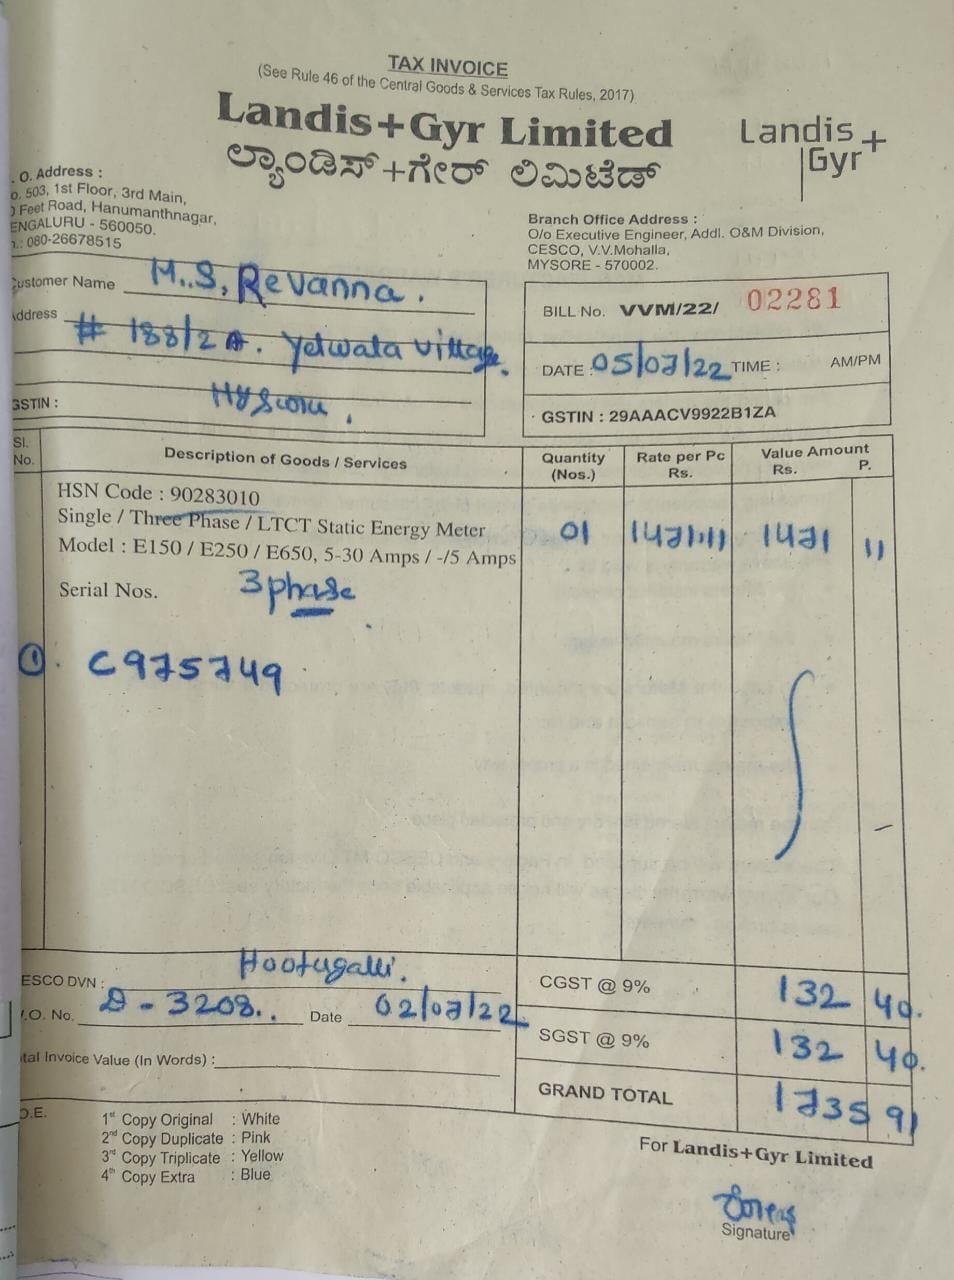 TAX INVOICE
(See Rule 46 of the Central Goods & Services Tax Rules, 2017)
Landis+Gyr Limited
ಲ್ಯಾಂಡಿಸ್+ಗೇರ್ ಲಿಮಿಟೆಡ್
Landis
Gyr+
. O. Address :
o. 503, 1st Floor, 3rd Main,
0 Feet Road, Hanumanthnagar,
ENGALURU - 560050.
n.: 080-26678515
Branch Office Address :
O/o Executive Engineer, Addl. O&M Division,
CESCO, V.V.Mohalla,
MYSORE - 570002.
Customer Name M.S, Revanna.
Address # 188/2A. Yelwala Village.
GSTIN :
BILL No. VVM/22/ 02281
DATE : 05/07/22 TIME : AM/PM
GSTIN : 29AAACV9922B1ZA
Sl. No. Description of Goods / Services Quantity (Nos.) Rate per Pc Rs. Value Amount Rs. P.
HSN Code : 90283010
Single / Three Phase / LTCT Static Energy Meter 01 1471.11 1471 11
Model : E150 / E250 / E650, 5-30 Amps / -/5 Amps
Serial Nos. 3 phase
①. C975749
ESCO DVN : Hootugalli.
.O. No. D-3208.. Date 02/07/22
tal Invoice Value (In Words) :
CGST @ 9% 132 40.
SGST @ 9% 132 40.
GRAND TOTAL 1735 91
O.E.
1st Copy Original : White
2nd Copy Duplicate : Pink
3rd Copy Triplicate : Yellow
4th Copy Extra : Blue
For Landis+Gyr Limited
Signature